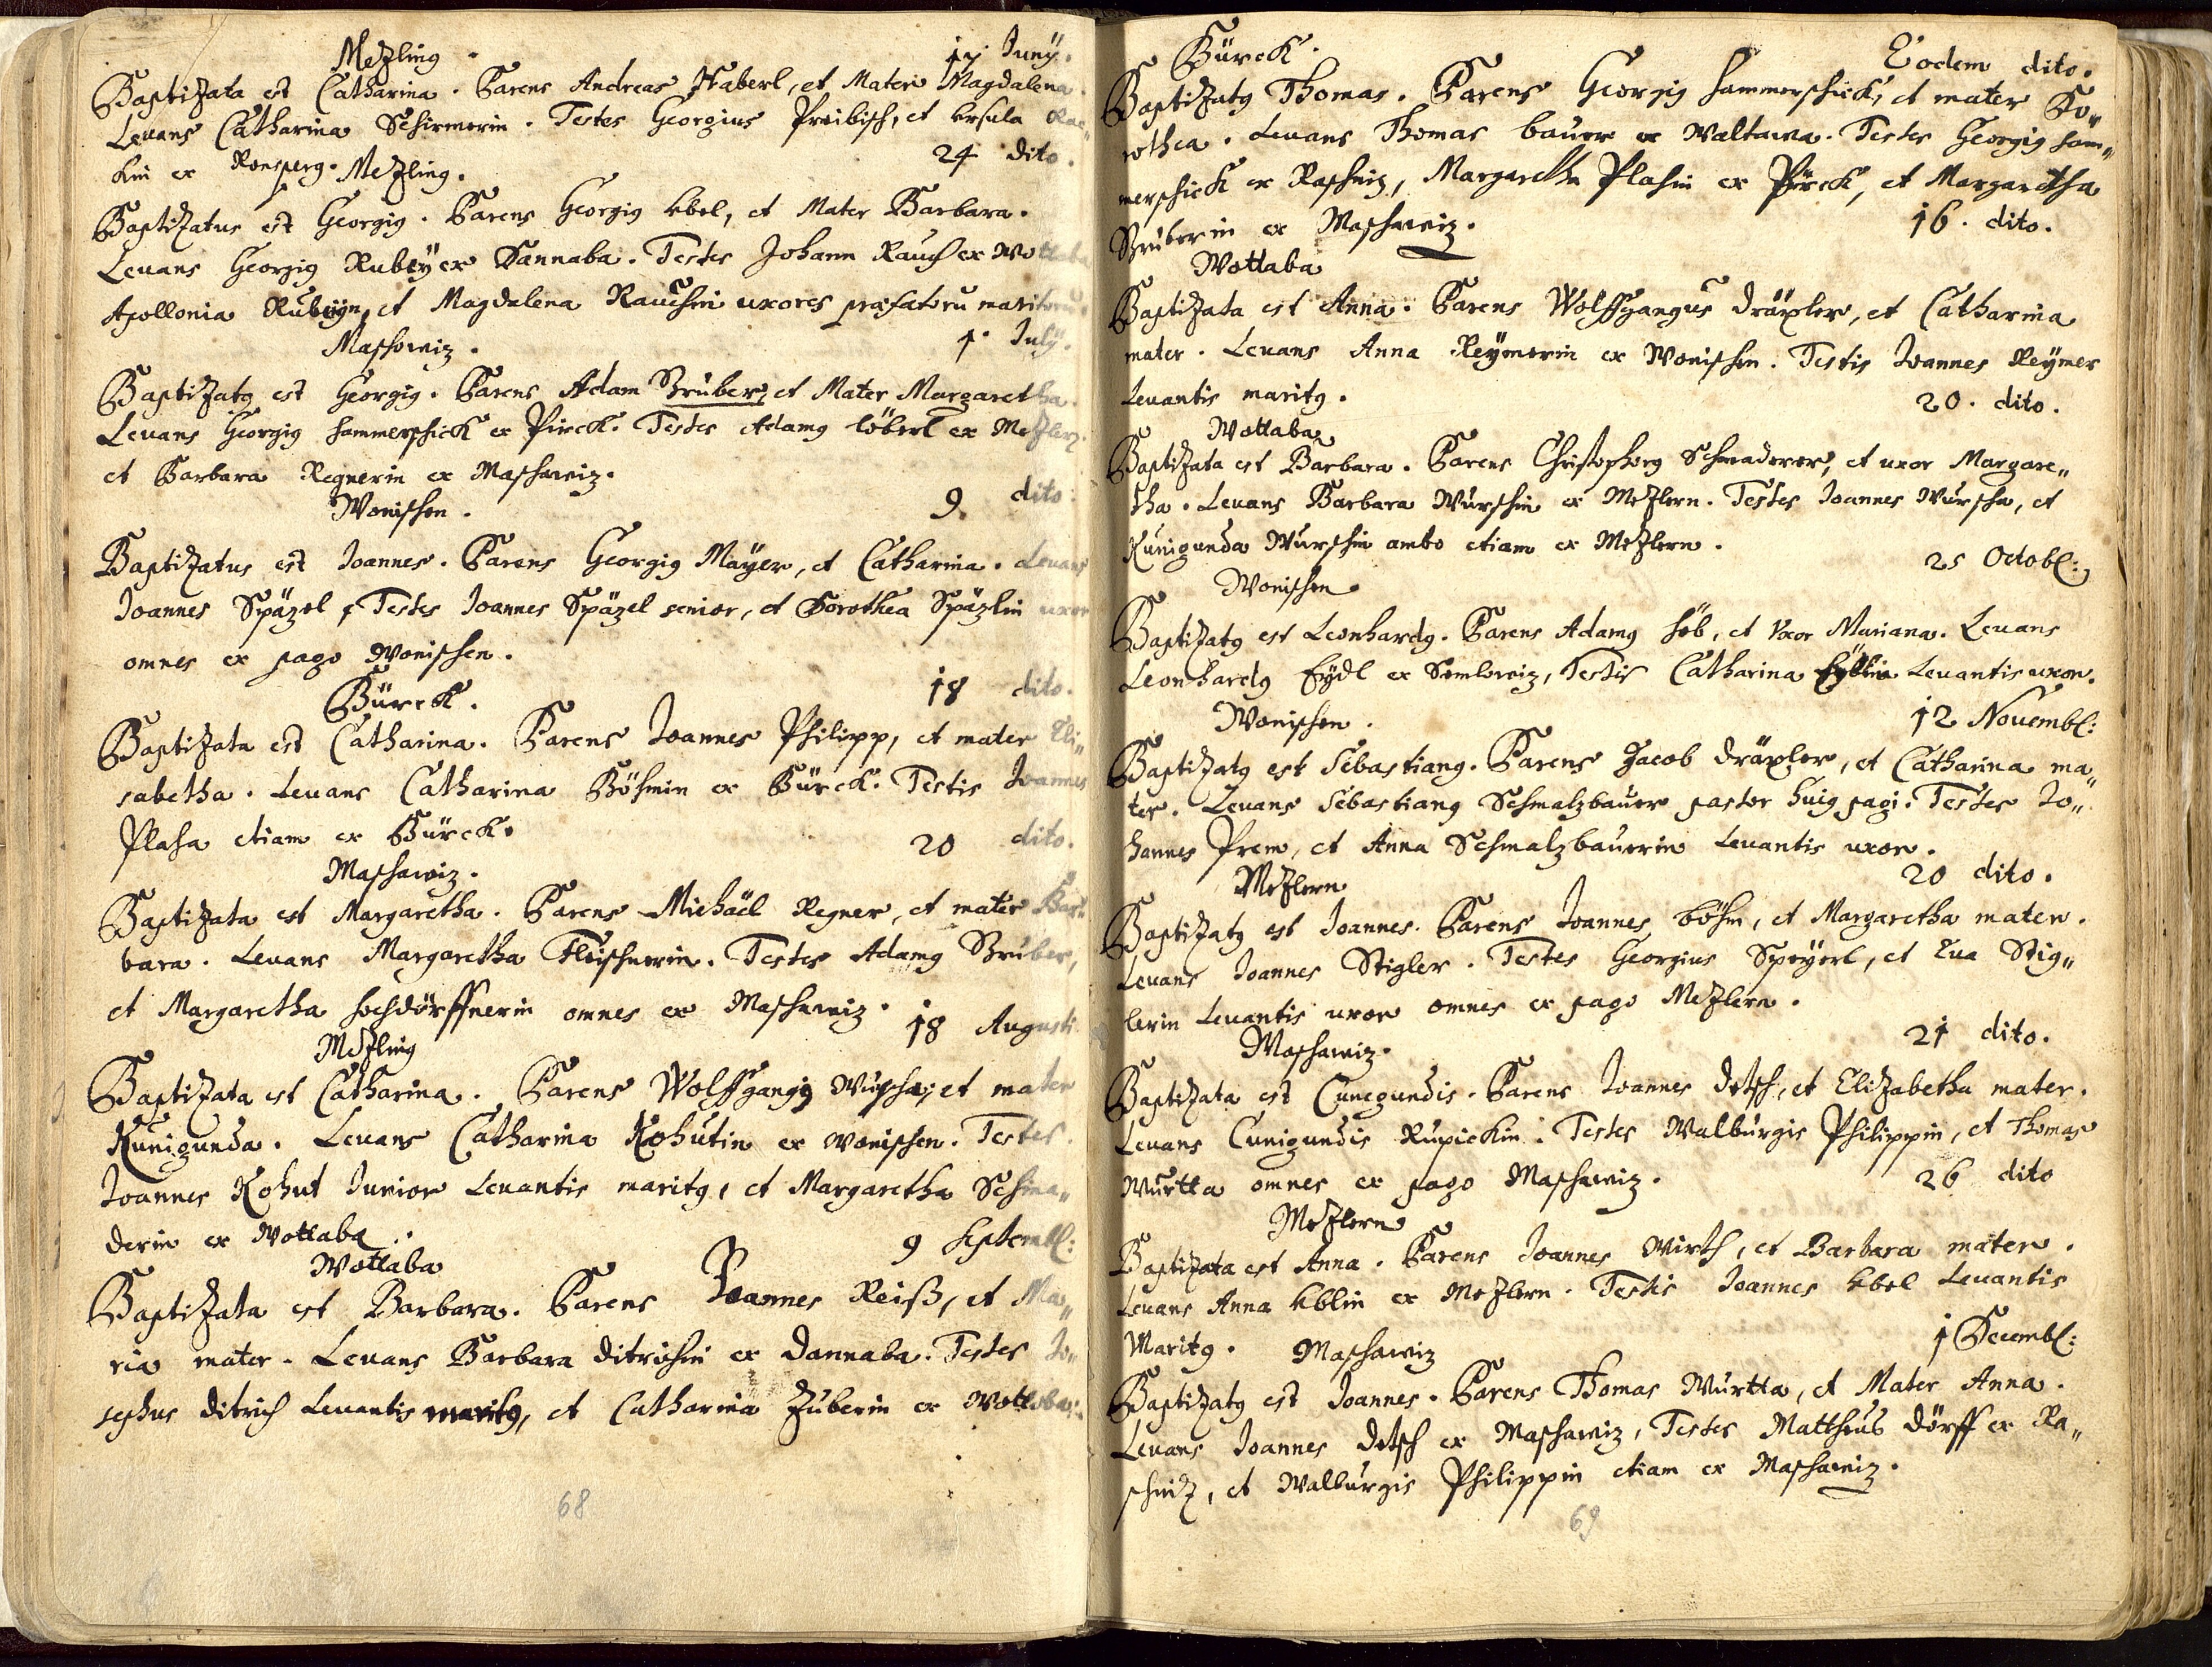 Mezling. 17 Juny.
Baptizata est Catharina. Parens Andreas Haberl, et Mater Magdalena.
Leuans Catharina Schirmerin. Testes Georgius Preibisch, et Ursula
kin ex Ronsperg. Mezling. 24 dito.
Baptizatus est Georgig. Parens Georgig Ubel, et Mater Barbara.
Leuans Georgig Rubey ex Dannaba. Testes Johann Rauch ex Wottaba
Apollonia Rubeyn, et Magdalena Rauchin uxores praefatoru maritoru.
Maschowiz. 4. July.
Baptizatg est Georgig. Parens Adam Gruber, et Mater Margaretha.
Leuans Georgig Hammerschick ex Pirck. Testes Adamg Löberl ex Mezlerg.
et Barbara Regnerin ex Maschawiz.
Wonischen. 9. dito.
Baptizatus est Joannes. Parens Georgig Mäyer, et Catharina. Leuans
Joannes Späzel, Testes Joannes Späzel senior, et Dorothea Späzlin uxor
omnes ex pago Wonischen.
Bürck. 18 dito.
Baptizata est Catharina. Parens Joannes Philipp, et mater Eli„
sabetha. Leuans Catharina Böhmin ex Bürck. Testis Joannes
Plaha etiam ex Bürck.
Maschawiz. 20 dito.
Baptizata est Margaretha. Parens Michäel Regner, et mater Bar„
bara. Leuans Margaretha Fleischnerin. Testes Adamg Gruber,
et Margaretha Hochdörffnerin omnes ex Maschawiz.
Mezling 18 Augusti.
Baptizata est Catharina. Parens Wolffgangg Wurscha, et mater
Kunigunda. Leuans Catharina Kohutin ex Wonischen. Testes.
Joannes Kohut Junior Leuantis maritg, et Margaretha Schma„
derin ex Wottaba.
Wottaba 9 Septembl:
Baptizata est Barbara. Parens Joannes Reiß, et Ma„
ria mater. Leuans Barbara Ditrichin ex Dannaba. Testes Jo„
sephus Ditrich Leuantis maritg, et Catharina Zuberin ex Wottaba.
68
Bürck. Eodem dito.
Baptizatg Thomas. Parens Georgig Hammerschick, et mater Do„
rothea. Leuans Thomas Bauer ex Waltawa. Testes Georgig Ham„
merschick ex Raschniz, Margaretha Plahin ex Pirck, et Margaretha
Gruberin ex Maschawiz. 16. dito.
Wottaba
Baptizata est Anna. Parens Wolffgangus Dräxler, et Catharina
mater. Leuans Anna Reymerin ex Wonischen. Testis Joannes Reymer
Leuantis maritg. 20. dito.
Wottaba
Baptizata est Barbara. Parens Christophorg Schmaderer, et uxor Margare„
tha. Leuans Barbara Wurschin ex Mezlern. Testes Joannes Wurscha, et
Kunigunda Wurschin ambo etiam ex Mezlern.
Wonischen 25 Octobl:
Baptizatg est Leonhardg. Parens Adamg Höb, et Uxor Mariana. Leuans
Leonhardg Eydl ex Semlowiz, Testis Catharina Eydlin Leuantis uxor.
Wonischen. 12 Nouembl:
Baptizatg est Sebastiang. Parens Jacob Dräxler, et Catharina ma„
ter. Leuans Sebastiang Schmalzbauer pastor huig pagi. Testes Jo„
hannes Prem, et Anna Schmalzbauerin Leuantis uxor.
Mezlern 20 dito.
Baptizatg est Joannes. Parens Joannes Böhm, et Margaretha mater.
Leuans Joannes Stigler. Testes Georgius Speyerl, et Eua Stig„
lerin Leuantis uxor omnes ex pago Mezlern.
Maschawiz. 21 dito.
Baptizata est Cunegundis. Parens Joannes Detsch, et Elizabetha mater.
Leuans Cunigundis Rupickin. Testes Walburgis Philippin, et Thomas
Wurtta omnes ex pago Maschawiz. 26 dito
Mezlern
Baptizata est Anna. Parens Joannes Wirth, et Barbara mater.
Leuans Anna Ublin ex Mezlern. Testis Joannes Ubel Leuantis
Maritg. Maschawiz 1 Decembl:
Baptizatg est Joannes. Parens Thomas Wurtta, et Mater Anna.
Leuans Joannes Detsch ex Maschawiz, Testes Mattheus Dörff ex Ra„
schniz, et Walburgis Philippin etiam ex Maschawiz.
69